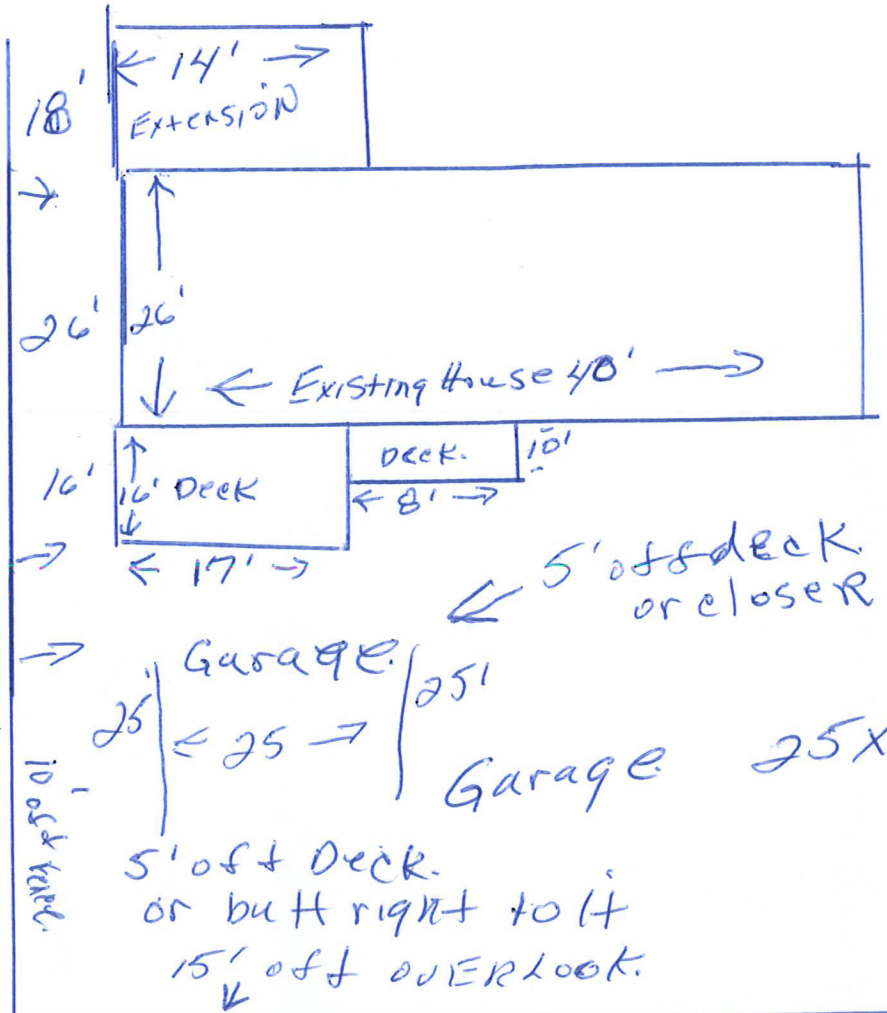 18'
← 14' →
Extension
→
26'
26'
← Existing House 40' →
16'
16' Deck
Deck.
10'
← 8' →
→
← 17' →
5' off deck
or closer
→
Garage.
25'
← 25 →
25'
Garage 25x
10' off
5' off Deck.
or butt right to it
15' off OVERLOOK.